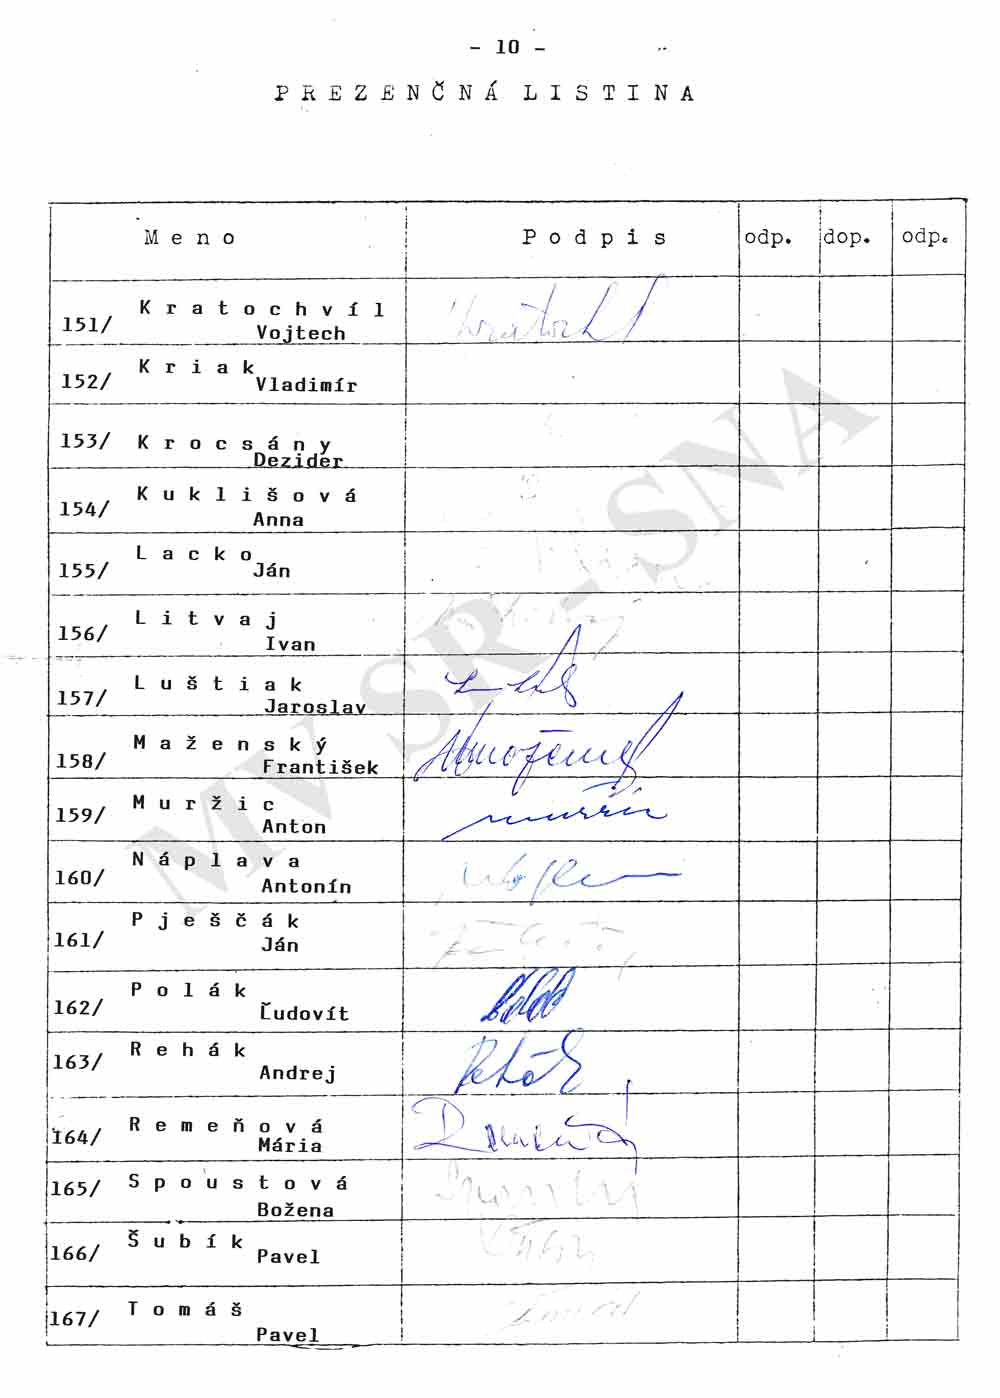 - 10 -
P R E Z E N Č N Á  L I S T I N A
M e n o P o d p i s odp. dop. odp.
151/ K r a t o c h v í l
Vojtech
152/ K r i a k
Vladimír
153/ K r o c s á n y
Dezider
154/ K u k l i š o v á
Anna
155/ L a c k o
Ján
156/ L i t v a j
Ivan
157/ L u š t i a k
Jaroslav
158/ M a ž e n s k ý
František
159/ M u r ž i c
Anton
160/ N á p l a v a
Antonín
161/ P j e š č á k
Ján
162/ P o l á k
Ľudovít
163/ R e h á k
Andrej
Rehák
164/ R e m e ň o v á
Mária
165/ S p o u s t o v á
Božena
166/ Š u b í k
Pavel
167/ T o m á š
Pavel
MV SR - SNA